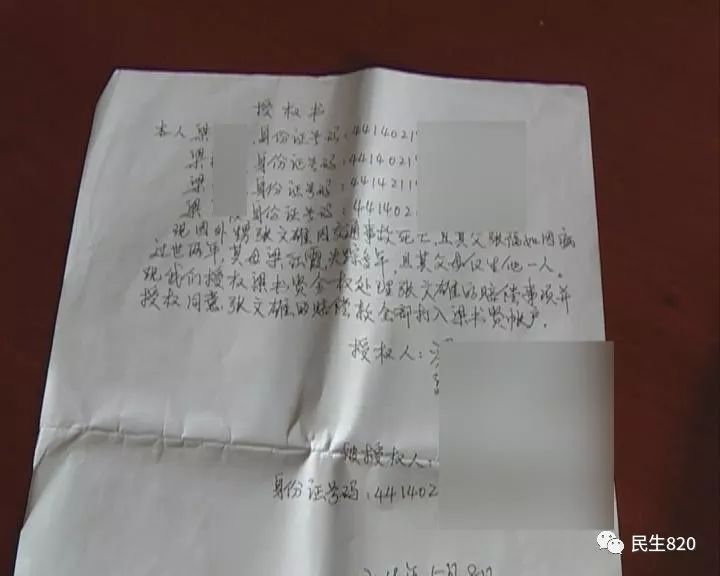 授权书
本人梁 身份证号码:4414021
梁 身份证号码:4414021
梁 身份证号码:4414211
梁 身份证号码:441402
现因外甥张文雄因交通事故死亡,且其父张 因病
过世两年,其母梁 失踪多年,且其父母仅生他一人。
现我们授权梁书贤全权处理张文雄的赔偿事项并
授权同意张文雄的赔偿款全部打入梁书贤帐户。
授权人:梁
被授权人:
身份证号码:441402
民生820